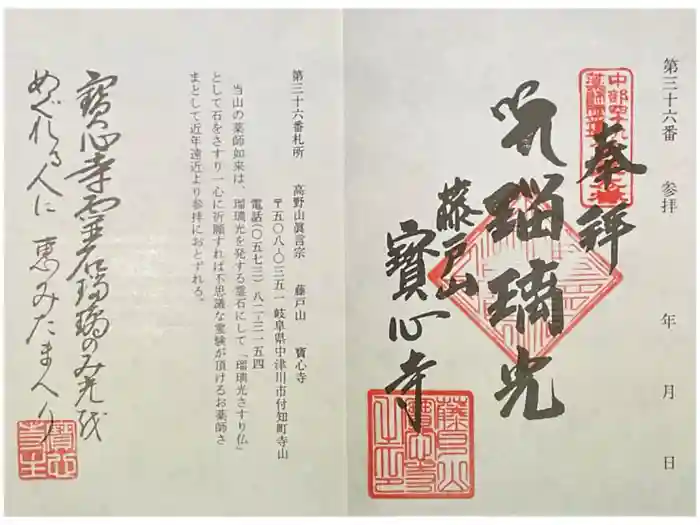 第三十六番 参拝 年 月 日
奉拝
瑠璃光
藤戸山
寳心寺
第三十六番札所 高野山眞言宗 藤戸山 寳心寺
〒五〇八-〇三五一 岐阜県中津川市付知町寺山
電話(〇五七三)八二-三一五四
当山の薬師如来は、瑠璃光を発する霊石にして「瑠璃光さすり仏」
として石をさすり一心に祈願すれば不思議な霊験が頂けるお薬師さ
まとして近年遠近より参拝におとずれる。
寳心寺霊石瑠璃のみ光を
めぐれる人に 恵みたまへり